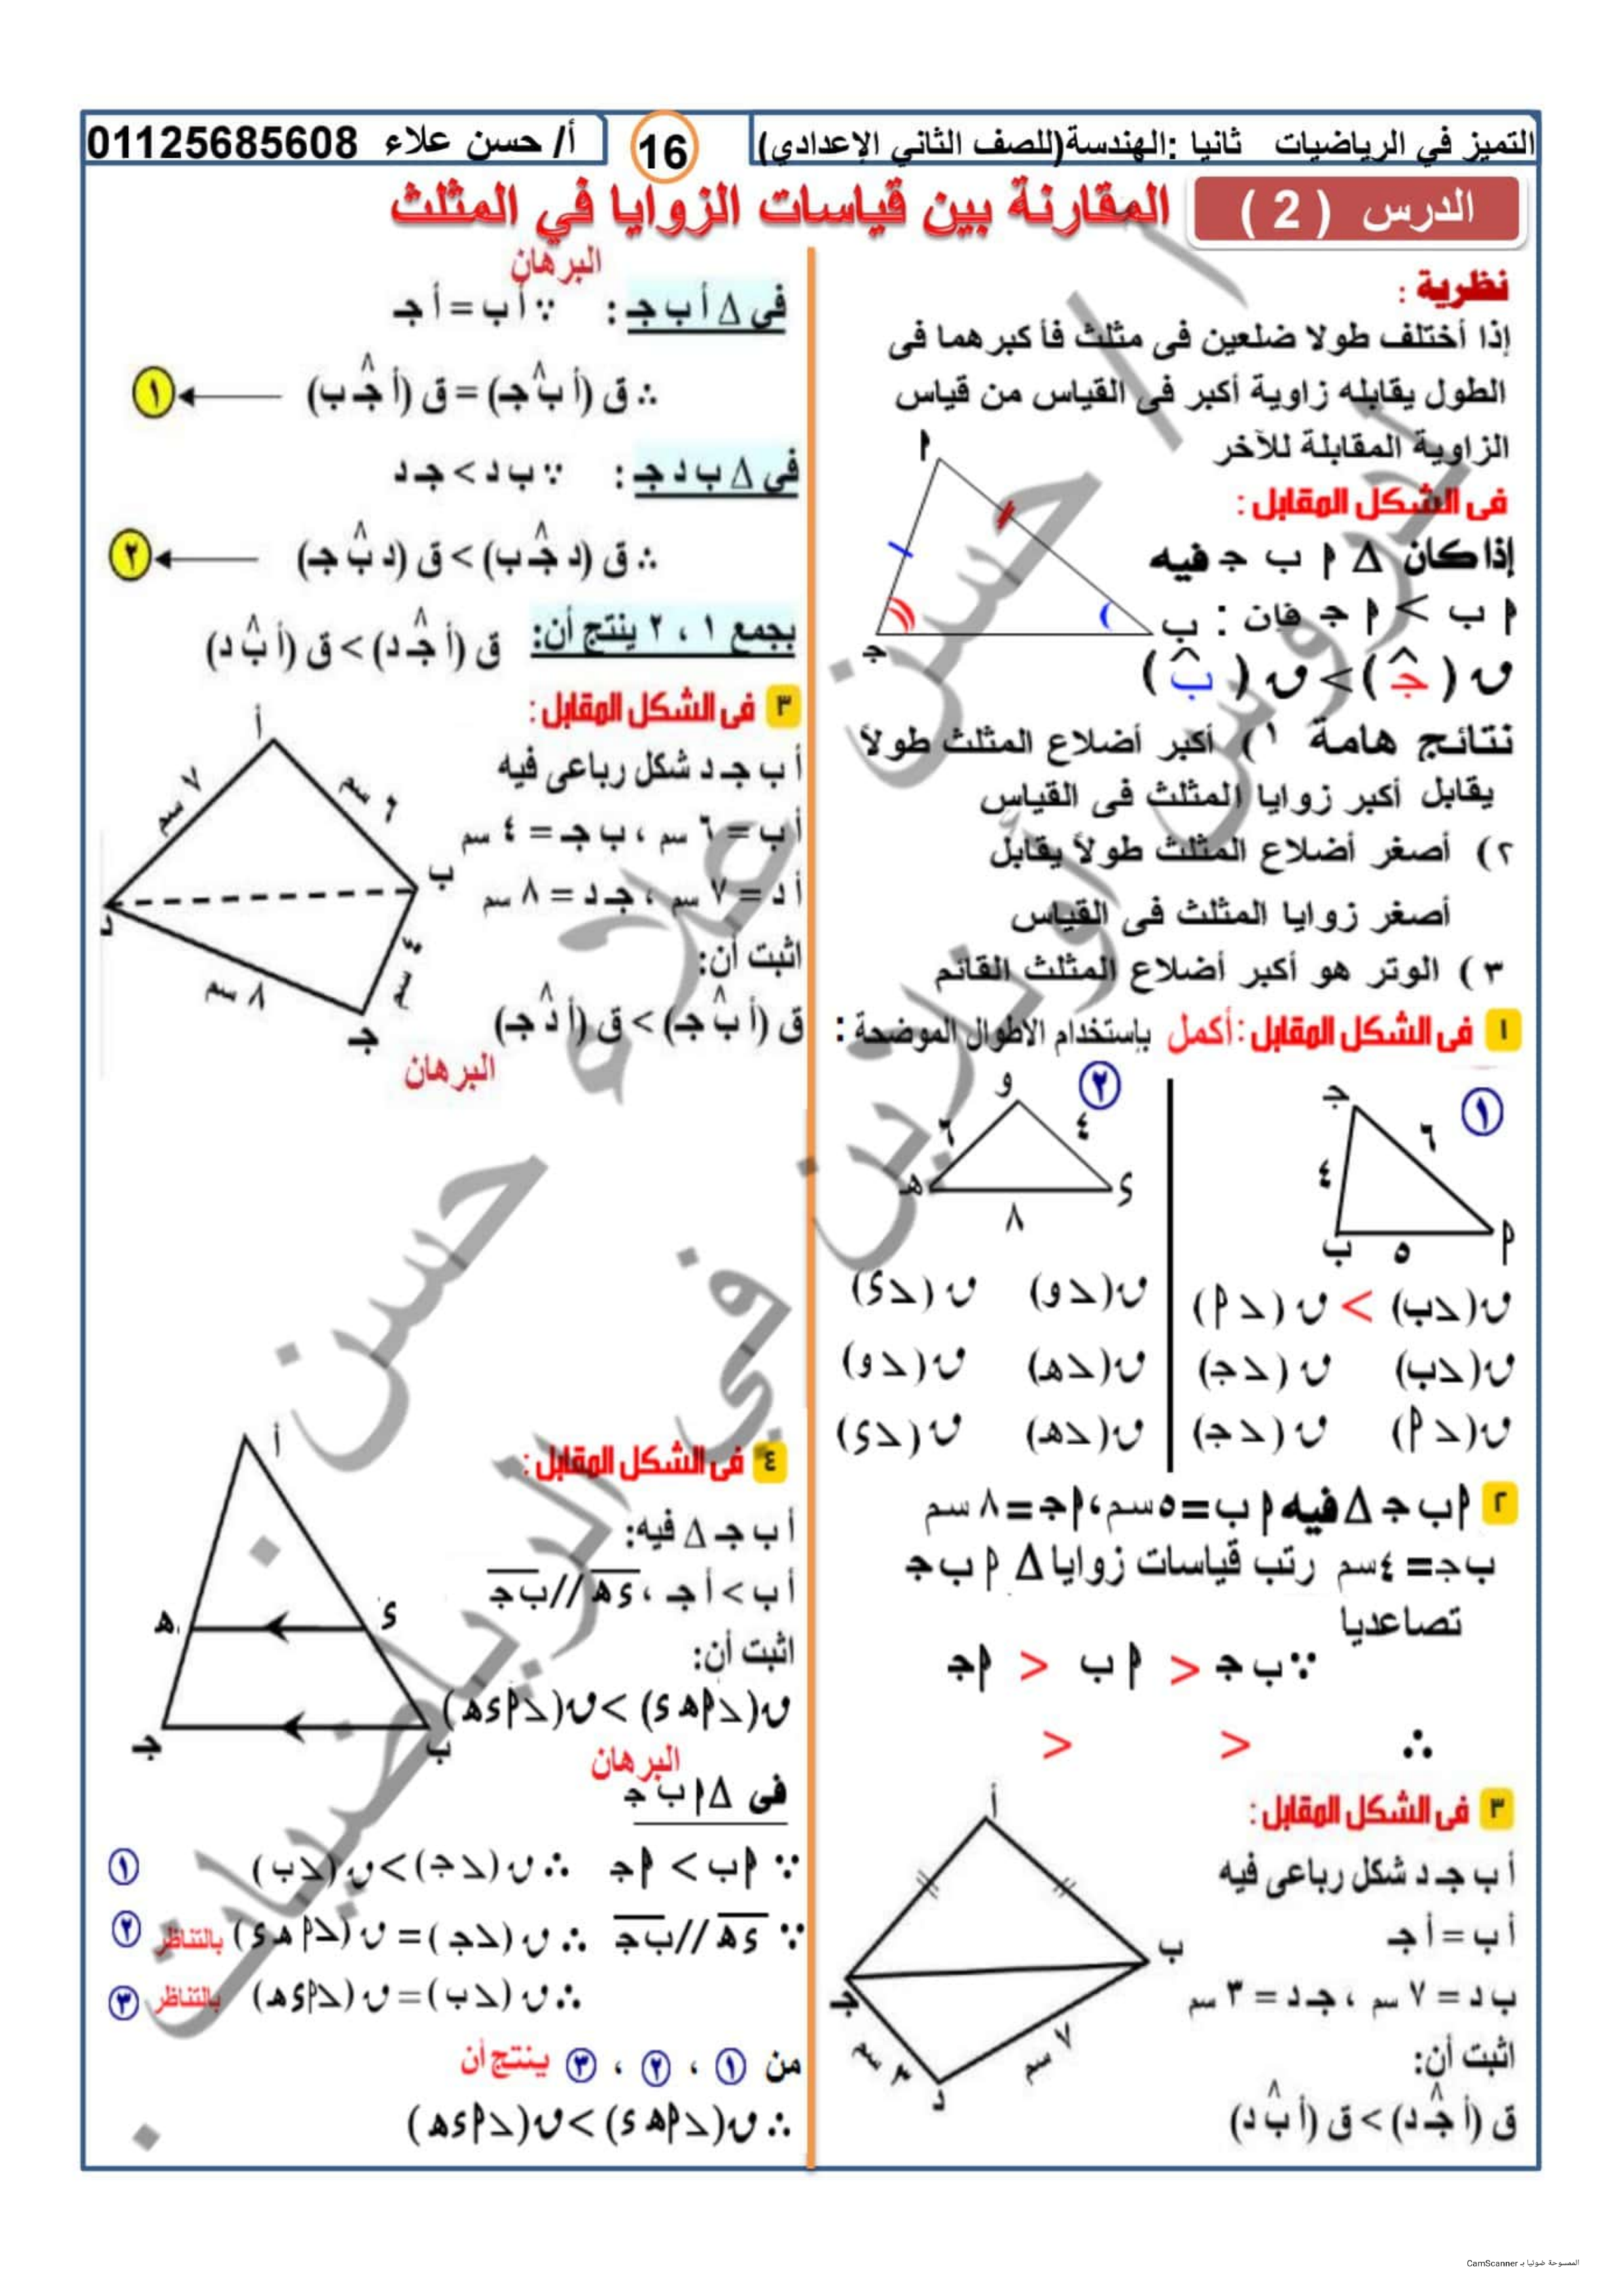 التميز في الرياضيات ثانيا :الهندسة(للصف الثاني الإعدادي)
16
أ/ حسن علاء 01125685608
الدرس ( 2 )
المقارنة بين قياسات الزوايا في المثلث
نظرية :
إذا أختلف طولا ضلعين فى مثلث فأكبرهما فى
الطول يقابله زاوية أكبر فى القياس من قياس
الزاوية المقابلة للآخر
فى الشكل المقابل :
إذا كان Δ ٩ ب ج فيه
٩ ب > ٩ ج فان :
ق (جـ) > ق (ب)
٩
ب
جـ
نتائج هامة ١) أكبر أضلاع المثلث طولاً
يقابل أكبر زوايا المثلث فى القياس
٢) أصغر أضلاع المثلث طولاً يقابل
أصغر زوايا المثلث فى القياس
٣) الوتر هو أكبر أضلاع المثلث القائم
١ فى الشكل المقابل : أكمل بإستخدام الاطوال الموضحة :
١
جـ
٦
٤
ب ٥ ٩
ق(∠ب) > ق(∠٩)
ق(∠ب) ق(∠جـ)
ق(∠٩) ق(∠جـ)
٢
و
٦ ٤
هـ ٨ ى
ق(∠و) ق(∠ى)
ق(∠هـ) ق(∠و)
ق(∠هـ) ق(∠ى)
٢ ٩ ب جـ Δ فيه ٩ ب = ٥ سم ، ٩ جـ = ٨ سم
ب جـ = ٤ سم رتب قياسات زوايا Δ ٩ ب جـ
تصاعديا
∵ ب جـ < ٩ ب < ٩ جـ
∴ < <
٣ فى الشكل المقابل :
أ ب جـ د شكل رباعى فيه
أ ب = أ جـ
ب د = ٧ سم ، جـ د = ٣ سم
اثبت أن:
ق (أ جـ د) > ق (أ ب د)
أ
ب
جـ
٣ سم
٧ سم
د
البرهان
فى Δ أ ب جـ : ∵ أ ب = أ جـ
∴ ق (أ ب جـ) = ق (أ جـ ب) ← ١
فى Δ ب د جـ : ∵ ب د > جـ د
∴ ق (د جـ ب) > ق (د ب جـ) ← ٢
بجمع ١ ، ٢ ينتج أن: ق (أ جـ د) > ق (أ ب د)
٣ فى الشكل المقابل :
أ ب جـ د شكل رباعى فيه
أ ب = ٦ سم ، ب جـ = ٤ سم
أ د = ٧ سم ، جـ د = ٨ سم
اثبت أن:
ق (أ ب جـ) > ق (أ د جـ)
أ
٧ سم
٦ سم
ب
د
٤ سم
٨ سم
جـ
البرهان
٤ فى الشكل المقابل :
أ ب جـ Δ فيه:
أ ب > أ جـ ، ى هـ // ب جـ
اثبت أن:
ق(∠٩ هـ ى) > ق(∠٩ ى هـ)
أ
هـ ى
جـ ب
البرهان
فى Δ ٩ ب جـ
∵ ٩ ب > ٩ جـ ∴ ق(∠جـ) > ق(∠ب) ١
∵ ى هـ // ب جـ ∴ ق(∠جـ) = ق(∠٩ هـ ى) بالتناظر ٢
∴ ق(∠ب) = ق(∠٩ ى هـ) بالتناظر ٣
من ١ ، ٢ ، ٣ ينتج أن
∴ ق(∠٩ هـ ى) > ق(∠٩ ى هـ)
الممسوحة ضوئيا بـ CamScanner